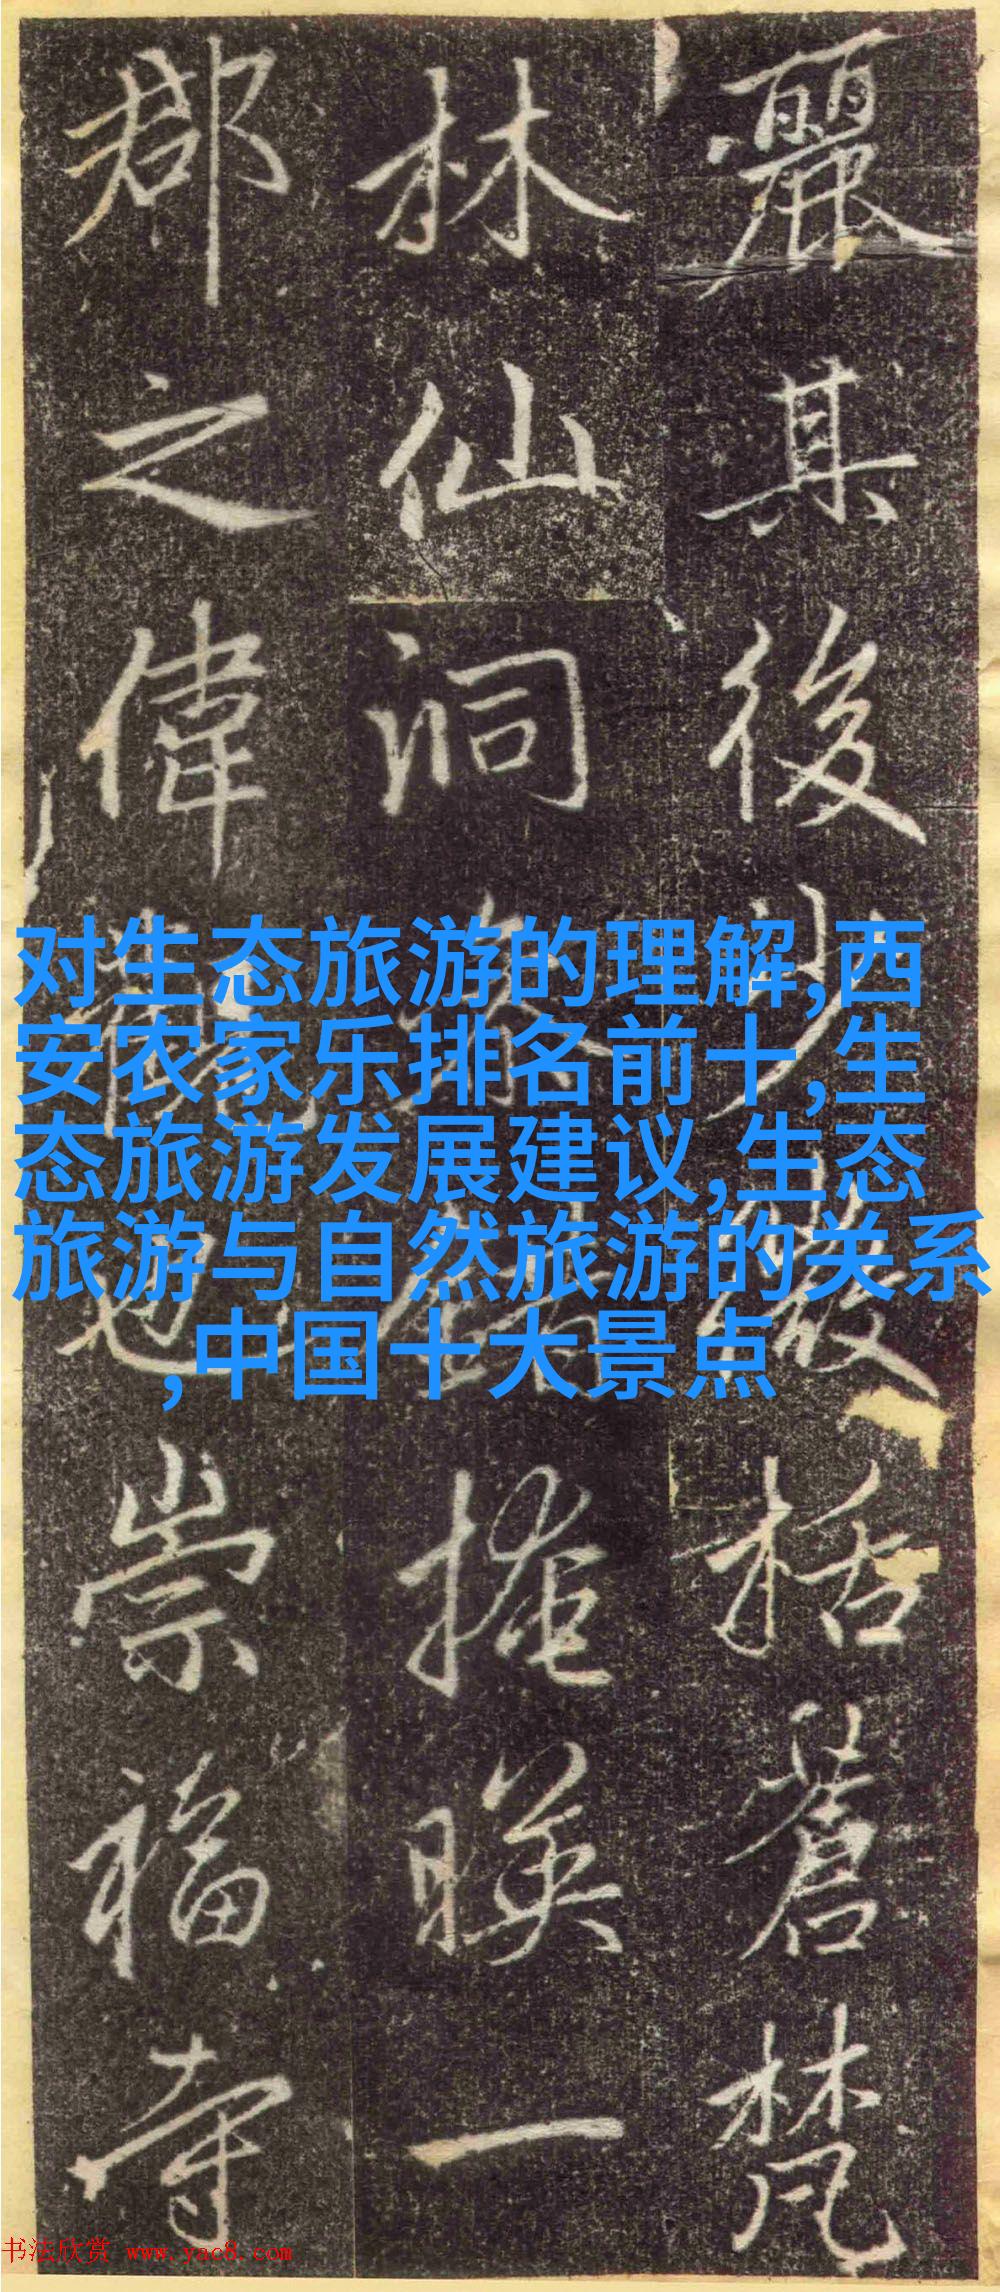 麗其後少微括蒼梵
林仙洞掩暎一
郡之偉觀也崇福寺
对生态旅游的理解,西
安农家乐排名前十,生
态旅游发展建议,生态
旅游与自然旅游的关系
,中国十大景点
书法欣赏 www.yac8.com